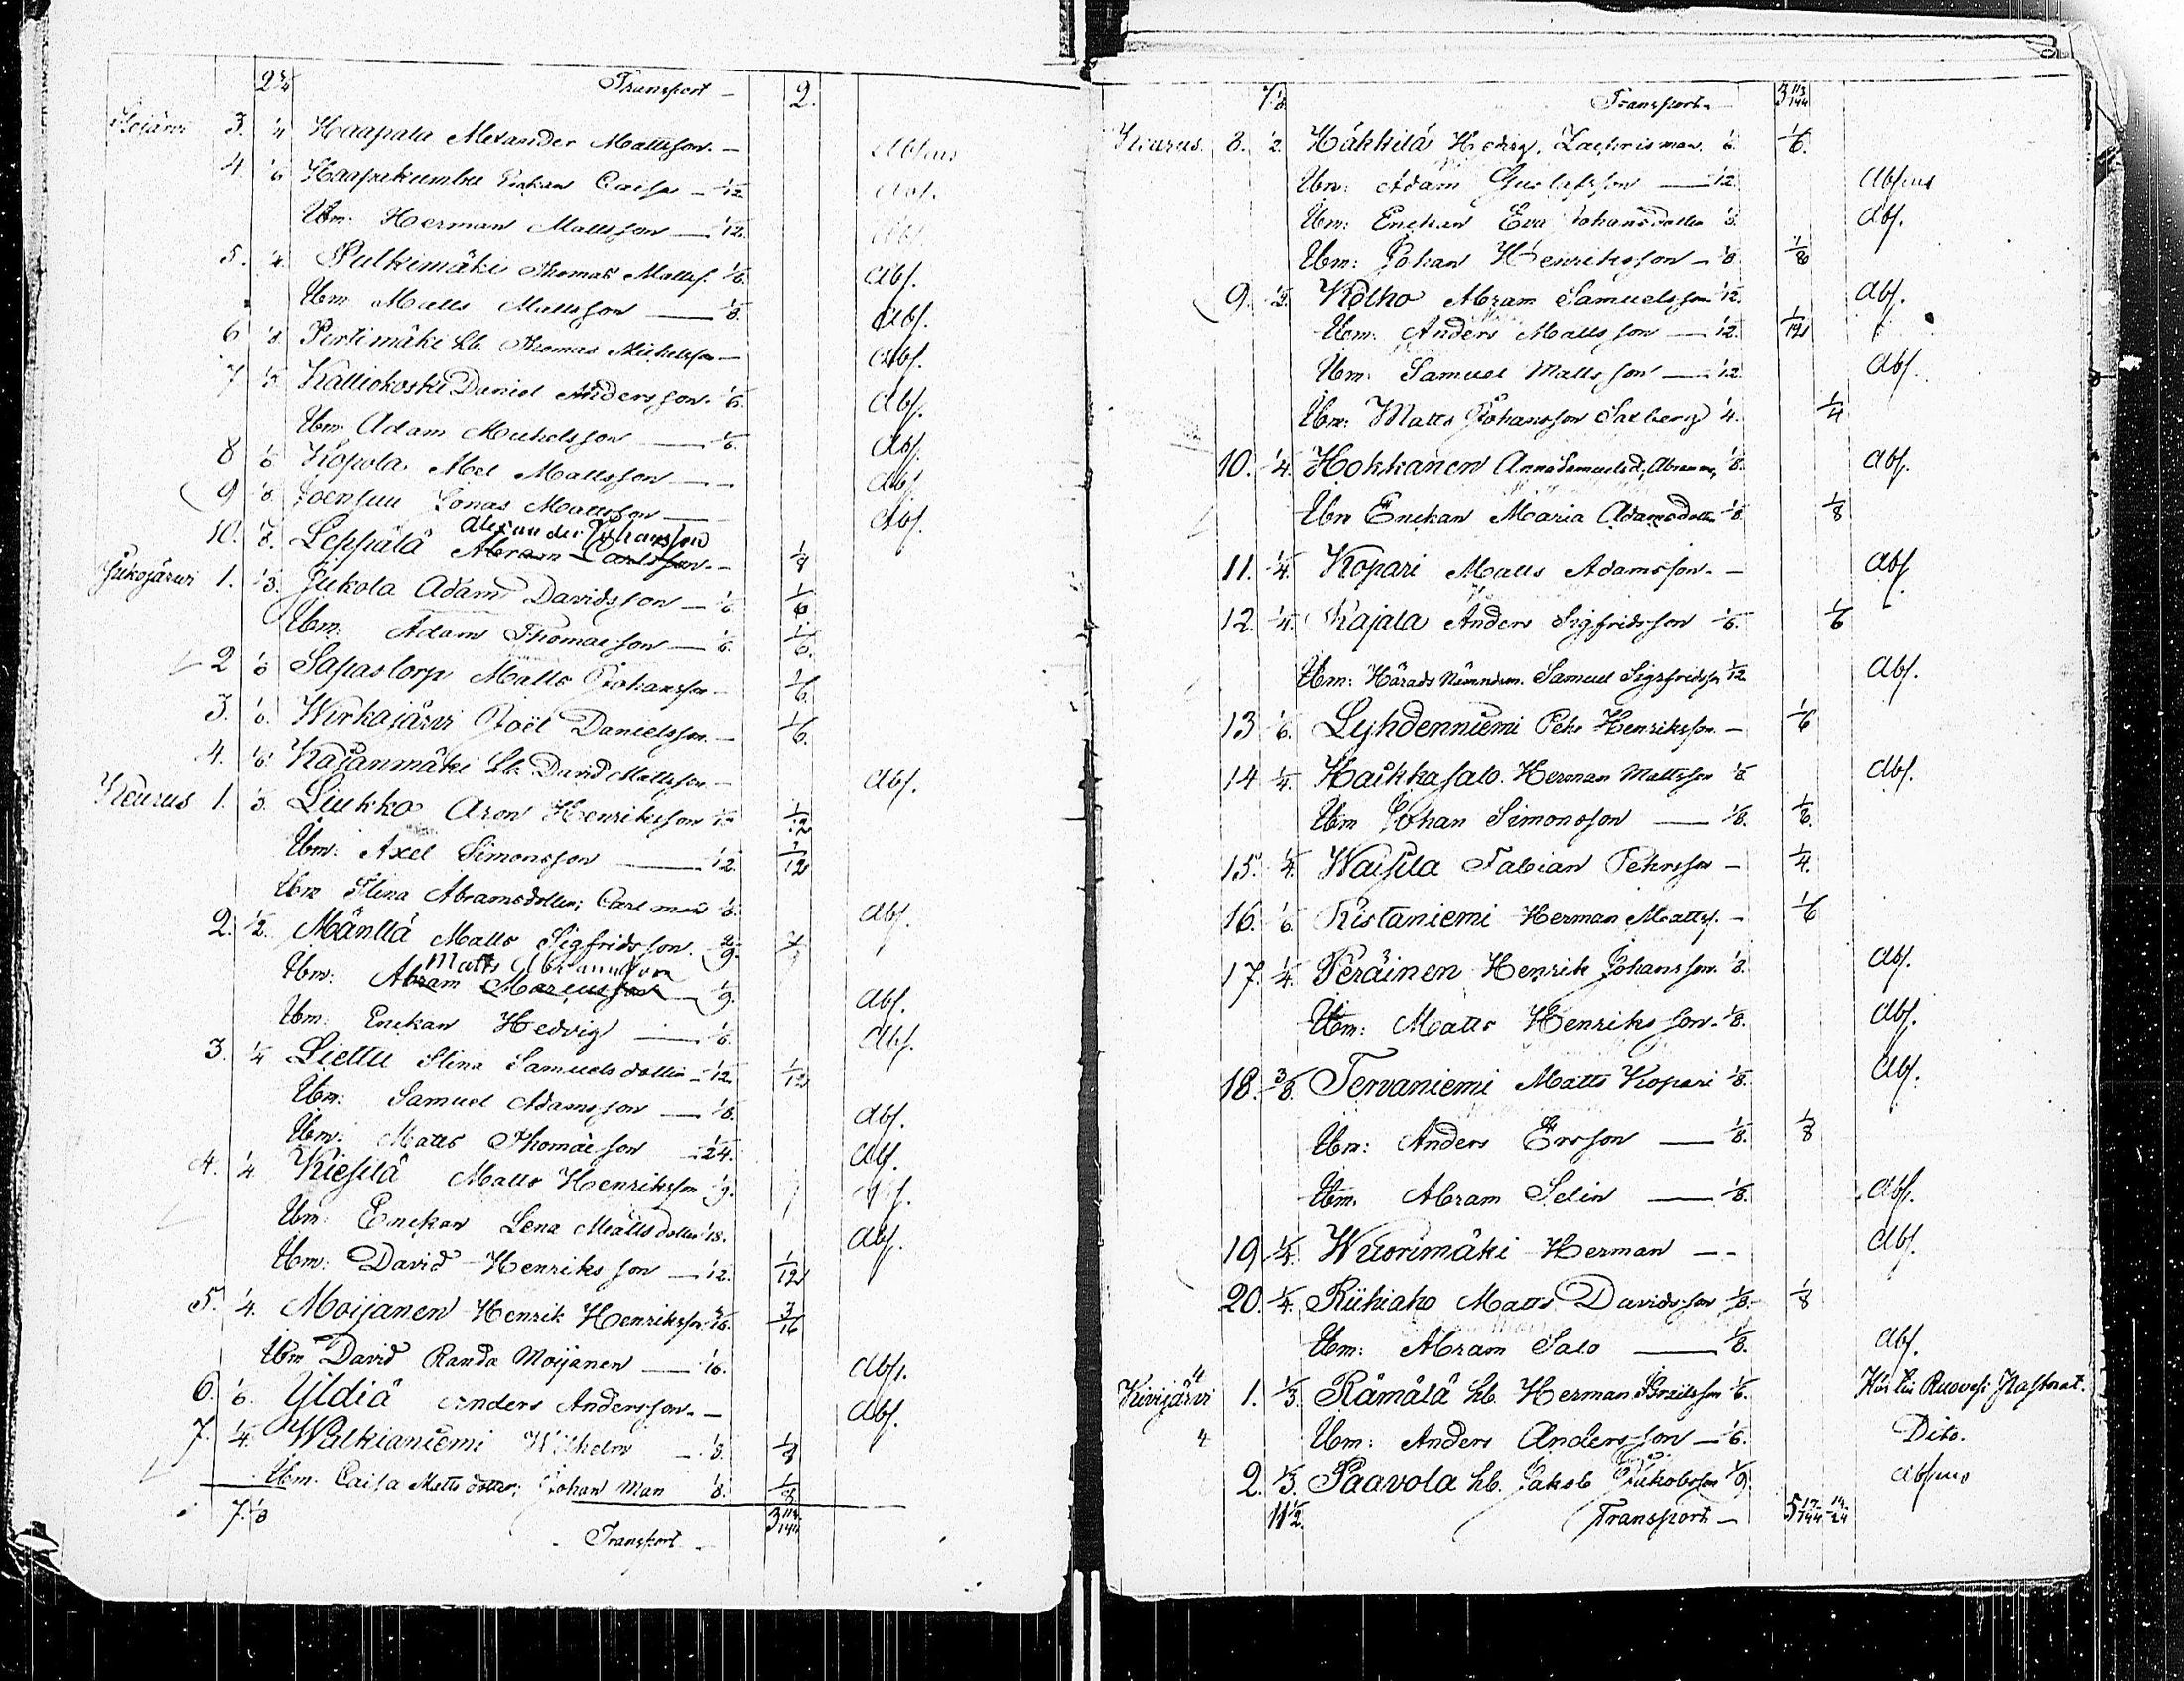 2 3/4 Transport - 2.
3. 1/4 Haapala Alexander Mattsson. - Absens
4. 1/6 Haapakumbu Enkan Caisa - 1/12 Abs.
Ibm. Herman Mattsson - 1/12. Abs.
5. 1/4. Pulkimäki Thomas Mattss. 1/8. Abs.
Ibm Matts Mattsson - 1/8. Abs.
6 1/8. Pertimäki Lb. Thomas Michelsson - Abs.
7 1/3. Kalliokoski Daniel Andersson. 1/6. Abs.
Ibm. Adam Michelsson - 1/6. Abs.
8 1/6 Kopola Abel Mattsson - Abs.
9 1/8. Joensuu Jonas Mattsson - Abs.
Alexander Johansson
10. 1/8. Leppälä Abram Carlsson. - 1/8
Jukojärwi 1. 1/3. Jukola Adam Davidsson - 1/6 1/6
Ibm: Adam Thomasson - 1/6. 1/6.
2 1/6 Sapastorp Matts Johansson - 1/6.
3. 1/6. Wirkajärvi Joël Danielsson. - 1/6.
4. 1/6. Kajanmäki Lb. David Mattsson - Abs.
Keurus 1. 1/3. Liukko Aron Henriksson 1/12 1/12
Ibm: Axel Simonsson - 1/12. 1/12
Ibm Stina Abramsdotter; Carl man 1/6. Abs.
2. 1/2. Mänttä Matts Sigfridsson. 2/9.
Matts Abramsson
Ibm: Abram Marcusson 1/9. Abs.
Ibm. Enckan Hedvig - 1/6. Abs.
3. 1/4 Liettu Stina Samuelsdotter - 1/12 1/12
Ibm: Samuel Adamsson - 1/8. Abs.
Ibm: Matts Thomasson - 1/24. Abs.
4. 1/4 Kiesilä Matts Henriksson 1/9. Abs.
Ibm: Enckan Lena Mattsdotter 1/18. Abs.
Ibm: David Henriksson - 1/12. 1/12
5. 1/4. Moijanen Henrik Henriksson 3/16. 3/16
Ibm David Randa Moijanen - 1/16. Abs.
6. 1/6. Yldiä Anders Andersson. - Abs.
7. 1/4. Walkianiemi Wilhelm - 1/8. 1/8
Ibm. Caisa Mattsdotter; Johan Man 1/8. 1/8
7. 1/8 Transport - 3 113/144
7. 1/8 Transport - 3 113/144
Keurus 8. 1/2. Häkkilä Hedvig, Zachris man. 1/6. 1/6.
Ibm: Adam Gustafsson - 1/12. Absens
Ibm: Enckan Eva Johansdotter 1/8. Abs.
Ibm: Johan Henriksson - 1/8 1/8
9. 1/2. Kolho Abram Samuelsson 1/12. Abs.
Ibm: Anders Mattsson - 1/12. 1/12
Ibm: Samuel Mattsson - 1/12. Abs.
Ibm: Matts Johansson Salberg 1/4. 1/4
10. 1/4. Hokkanen Anna Samuelsd, Abram m, 1/8. Abs.
Ibm Enckan Maria Adamsdotter 1/8 1/8
11. 1/4. Kopari Matts Adamsson. - Abs.
12. 1/4. Kajala Anders Sigfridsson 1/6. 1/6
Ibm: Härads Nämndem. Samuel Sigfridsson 1/12 Abs.
13 1/6. Lyhdenniemi Pehr Henriksson. - 1/6
14 1/4. Haikkasalo. Herman Mattsson 1/8. Abs.
Ibm Johan Simonsson - 1/8. 1/8.
15. 1/4. Waisila Fabian Pehrsson - 1/4.
16. 1/6. Ristaniemi Herman Mattss. - 1/6
17. 1/4. Peräinen Henrik Johansson. 1/8. Abs.
Ibm: Matts Henriksson. 1/8. Abs.
18. 3/8. Tervaniemi Matts Kopari 1/8. Abs.
Ibm: Anders Ersson - 1/8. 1/8
Ibm. Abram Selin - 1/8. Abs.
19. 1/4. Wuorimäki Herman - Abs.
20. 1/4. Riihiaho Matts Davidsson 1/8. 1/8
Ibm: Abram Salo - 1/8. Abs.
Kivijärvi 1. 1/3. Rämälä Lb. Herman 1/6. Hör till Ruovesi Pastorat.
4 Ibm: Anders Andersson - 1/6. Dito.
2. 1/3. Paavola Lb. Jakob Jakobsson 1/9. Absens
11 1/2. Transport - 5 17/144 14/24